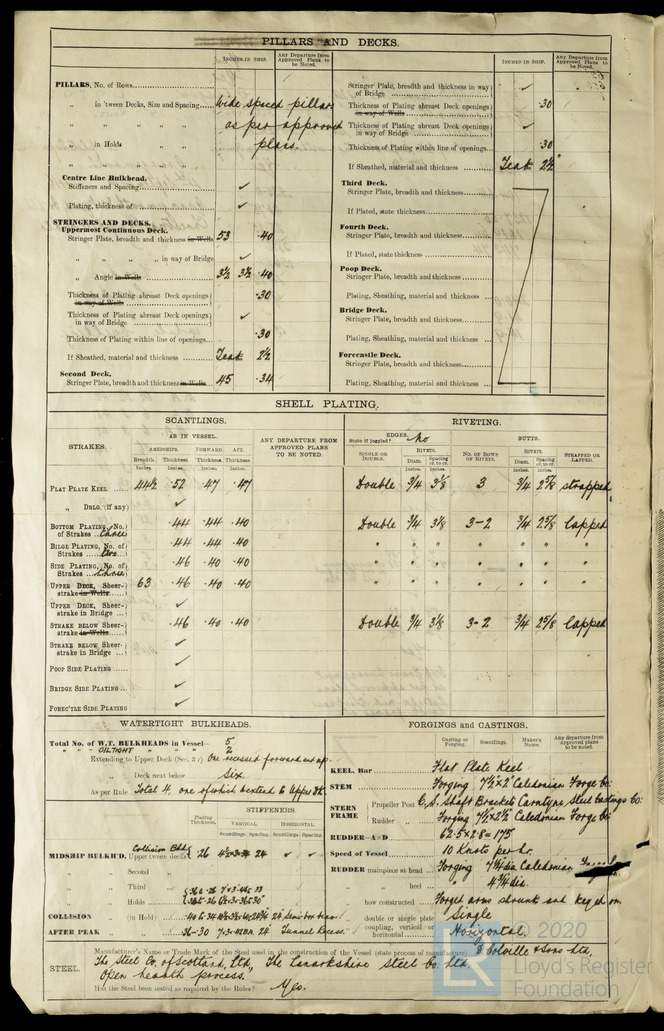 PILLARS AND DECKS.
INCHES IN SHIP.
Any Departure from Approved Plans to be Noted.
PILLARS, No. of Rows
„ in 'tween Decks, Size and Spacing Wide spaced pillars
„ „ „ „ as per approved
„ in Holds „ plans.
„ „ „ „
Centre Line Bulkhead.
Stiffeners and Spacing ✓
Plating, thickness of ✓
STRINGERS AND DECKS.
Uppermost Continuous Deck.
Stringer Plate, breadth and thickness in Wells 53 .40
„ „ „ „ in way of Bridge ✓
„ Angle in Wells 3½ 3½ .40
Thickness of Plating abreast Deck openings in way of Wells .30
Thickness of Plating abreast Deck openings in way of Bridge ✓
Thickness of Plating within line of openings .30
If Sheathed, material and thickness Teak 2½
Second Deck.
Stringer Plate, breadth and thickness in Wells 45 .34
INCHES IN SHIP.
Any Departure from Approved Plans to be Noted.
Stringer Plate, breadth and thickness in way of Bridge ✓
Thickness of Plating abreast Deck openings in way of Wells .30
Thickness of Plating abreast Deck openings in way of Bridge ✓
Thickness of Plating within line of openings .30
If Sheathed, material and thickness Teak 2½"
Third Deck.
Stringer Plate, breadth and thickness
If Plated, state thickness
Fourth Deck.
Stringer Plate, breadth and thickness
If Plated, state thickness
Poop Deck.
Stringer Plate, breadth and thickness
Plating, Sheathing, material and thickness
Bridge Deck.
Stringer Plate, breadth and thickness
Plating, Sheathing, material and thickness
Forecastle Deck.
Stringer Plate, breadth and thickness
Plating, Sheathing, material and thickness
SHELL PLATING.
SCANTLINGS. RIVETING.
STRAKES. AS IN VESSEL. ANY DEPARTURE FROM APPROVED PLANS TO BE NOTED. EDGES. State if joggled? No BUTTS.
AMIDSHIPS. FORWARD. AFT. SINGLE OR DOUBLE. RIVETS. No. OF ROWS OF RIVETS. RIVETS. STRAPPED OR LAPPED.
Breadth. Thickness. Thickness. Thickness. Diam. Spacing cr. to cr. Diam. Spacing cr. to cr.
Inches. Inches. Inches. Inches. Inches. Inches. Inches. Inches.
FLAT PLATE KEEL 44½ .52 .47 .47 Double ¾ 3⅛ 3 ¾ 2⅝ strapped
„ DBLG. (if any) ✓
BOTTOM PLATING, No. of Strakes three .44 .44 .40 Double ¾ 3⅛ 3-2 ¾ 2⅝ lapped
BILGE PLATING, No. of Strakes two .44 .44 .40 " " " " " " "
SIDE PLATING, No. of Strakes three .46 .40 .40 " " " " " " "
UPPER DECK, Sheerstrake in Wells 63 .46 .40 .40 " " " " " " "
UPPER DECK, Sheerstrake in Bridge ✓
STRAKE BELOW Sheerstrake in Wells .46 .40 .40 Double ¾ 3⅛ 3-2 ¾ 2⅝ lapped
STRAKE BELOW Sheerstrake in Bridge ✓
POOP SIDE PLATING ✓
BRIDGE SIDE PLATING ✓
FORECTLE SIDE PLATING ✓
WATERTIGHT BULKHEADS.
Total No. of W.T. BULKHEADS in Vessel— 5
„ „ „ OILTIGHT „ „ 2
Extending to Upper Deck (Sec. 3 c) One recessed forward and up.
„ Deck next below Six.
As per Rule Total 4 one of which extend to Upper Dk.
Plating Thickness. STIFFENERS.
VERTICAL. HORIZONTAL.
Scantlings. Spacing. Scantlings. Spacing.
MIDSHIP BULKH'D. Collision Bhd Upper 'tween decks .26 24 ✓ ✓
„ „ Second „
„ „ Third „
„ „ Holds
COLLISION „ (in Hold)
AFTER PEAK „ „ .36-.30 24" Tunnel Recess.
FORGINGS AND CASTINGS.
Casting or Forging. Scantlings. Maker's Name. Any departure from approved plans to be noted.
KEEL, Bar Flat Plate Keel
STEM Forging 7½ x 2" Caledonian Forge Co:
STERN FRAME Propeller Post C.S. Shaft Brackets Carntyne Steel Castings Co:
Rudder „ Forging 7½ x 2½" Caledonian Forge Co:
RUDDER—A×D 62.5 x 2.8 = 175
Speed of Vessel 10 Knots per hr.
RUDDER mainpiece at head Forging 7¼ dia Caledonian
„ „ heel 4¾ dia.
how constructed Forged arms shrunk and keyed on
double or single plate Single
coupling, vertical or horizontal Horizontal.
STEEL. Manufacturer's Name or Trade Mark of the Steel used in the construction of the Vessel (state process of manufacture) D Colville & Sons Ltd,
The Steel Co of Scotland, Ltd, The Lanarkshire Steel Co. Ltd.
Open hearth process.
Has the Steel been tested as required by the Rules? Yes.
© 2020
Lloyd's Register
Foundation
LR